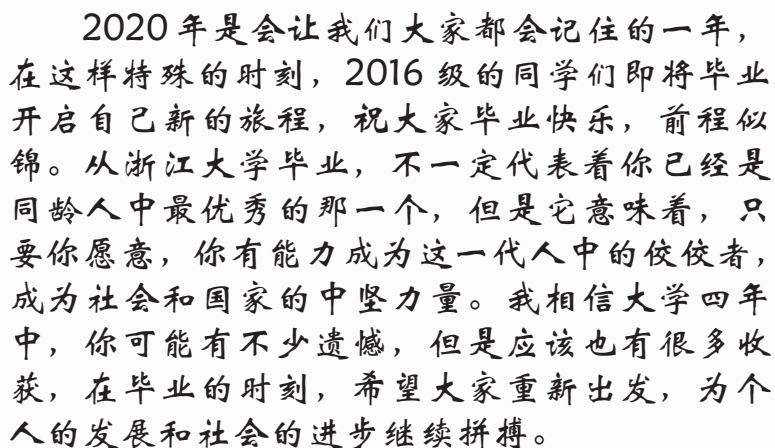 2020 年是会让我们大家都会记住的一年，
在这样特殊的时刻，2016 级的同学们即将毕业
开启自己新的旅程，祝大家毕业快乐，前程似
锦。从浙江大学毕业，不一定代表着你已经是
同龄人中最优秀的那一个，但是它意味着，只
要你愿意，你有能力成为这一代人中的佼佼者，
成为社会和国家的中坚力量。我相信大学四年
中，你可能有不少遗憾，但是应该也有很多收
获，在毕业的时刻，希望大家重新出发，为个
人的发展和社会的进步继续拼搏。